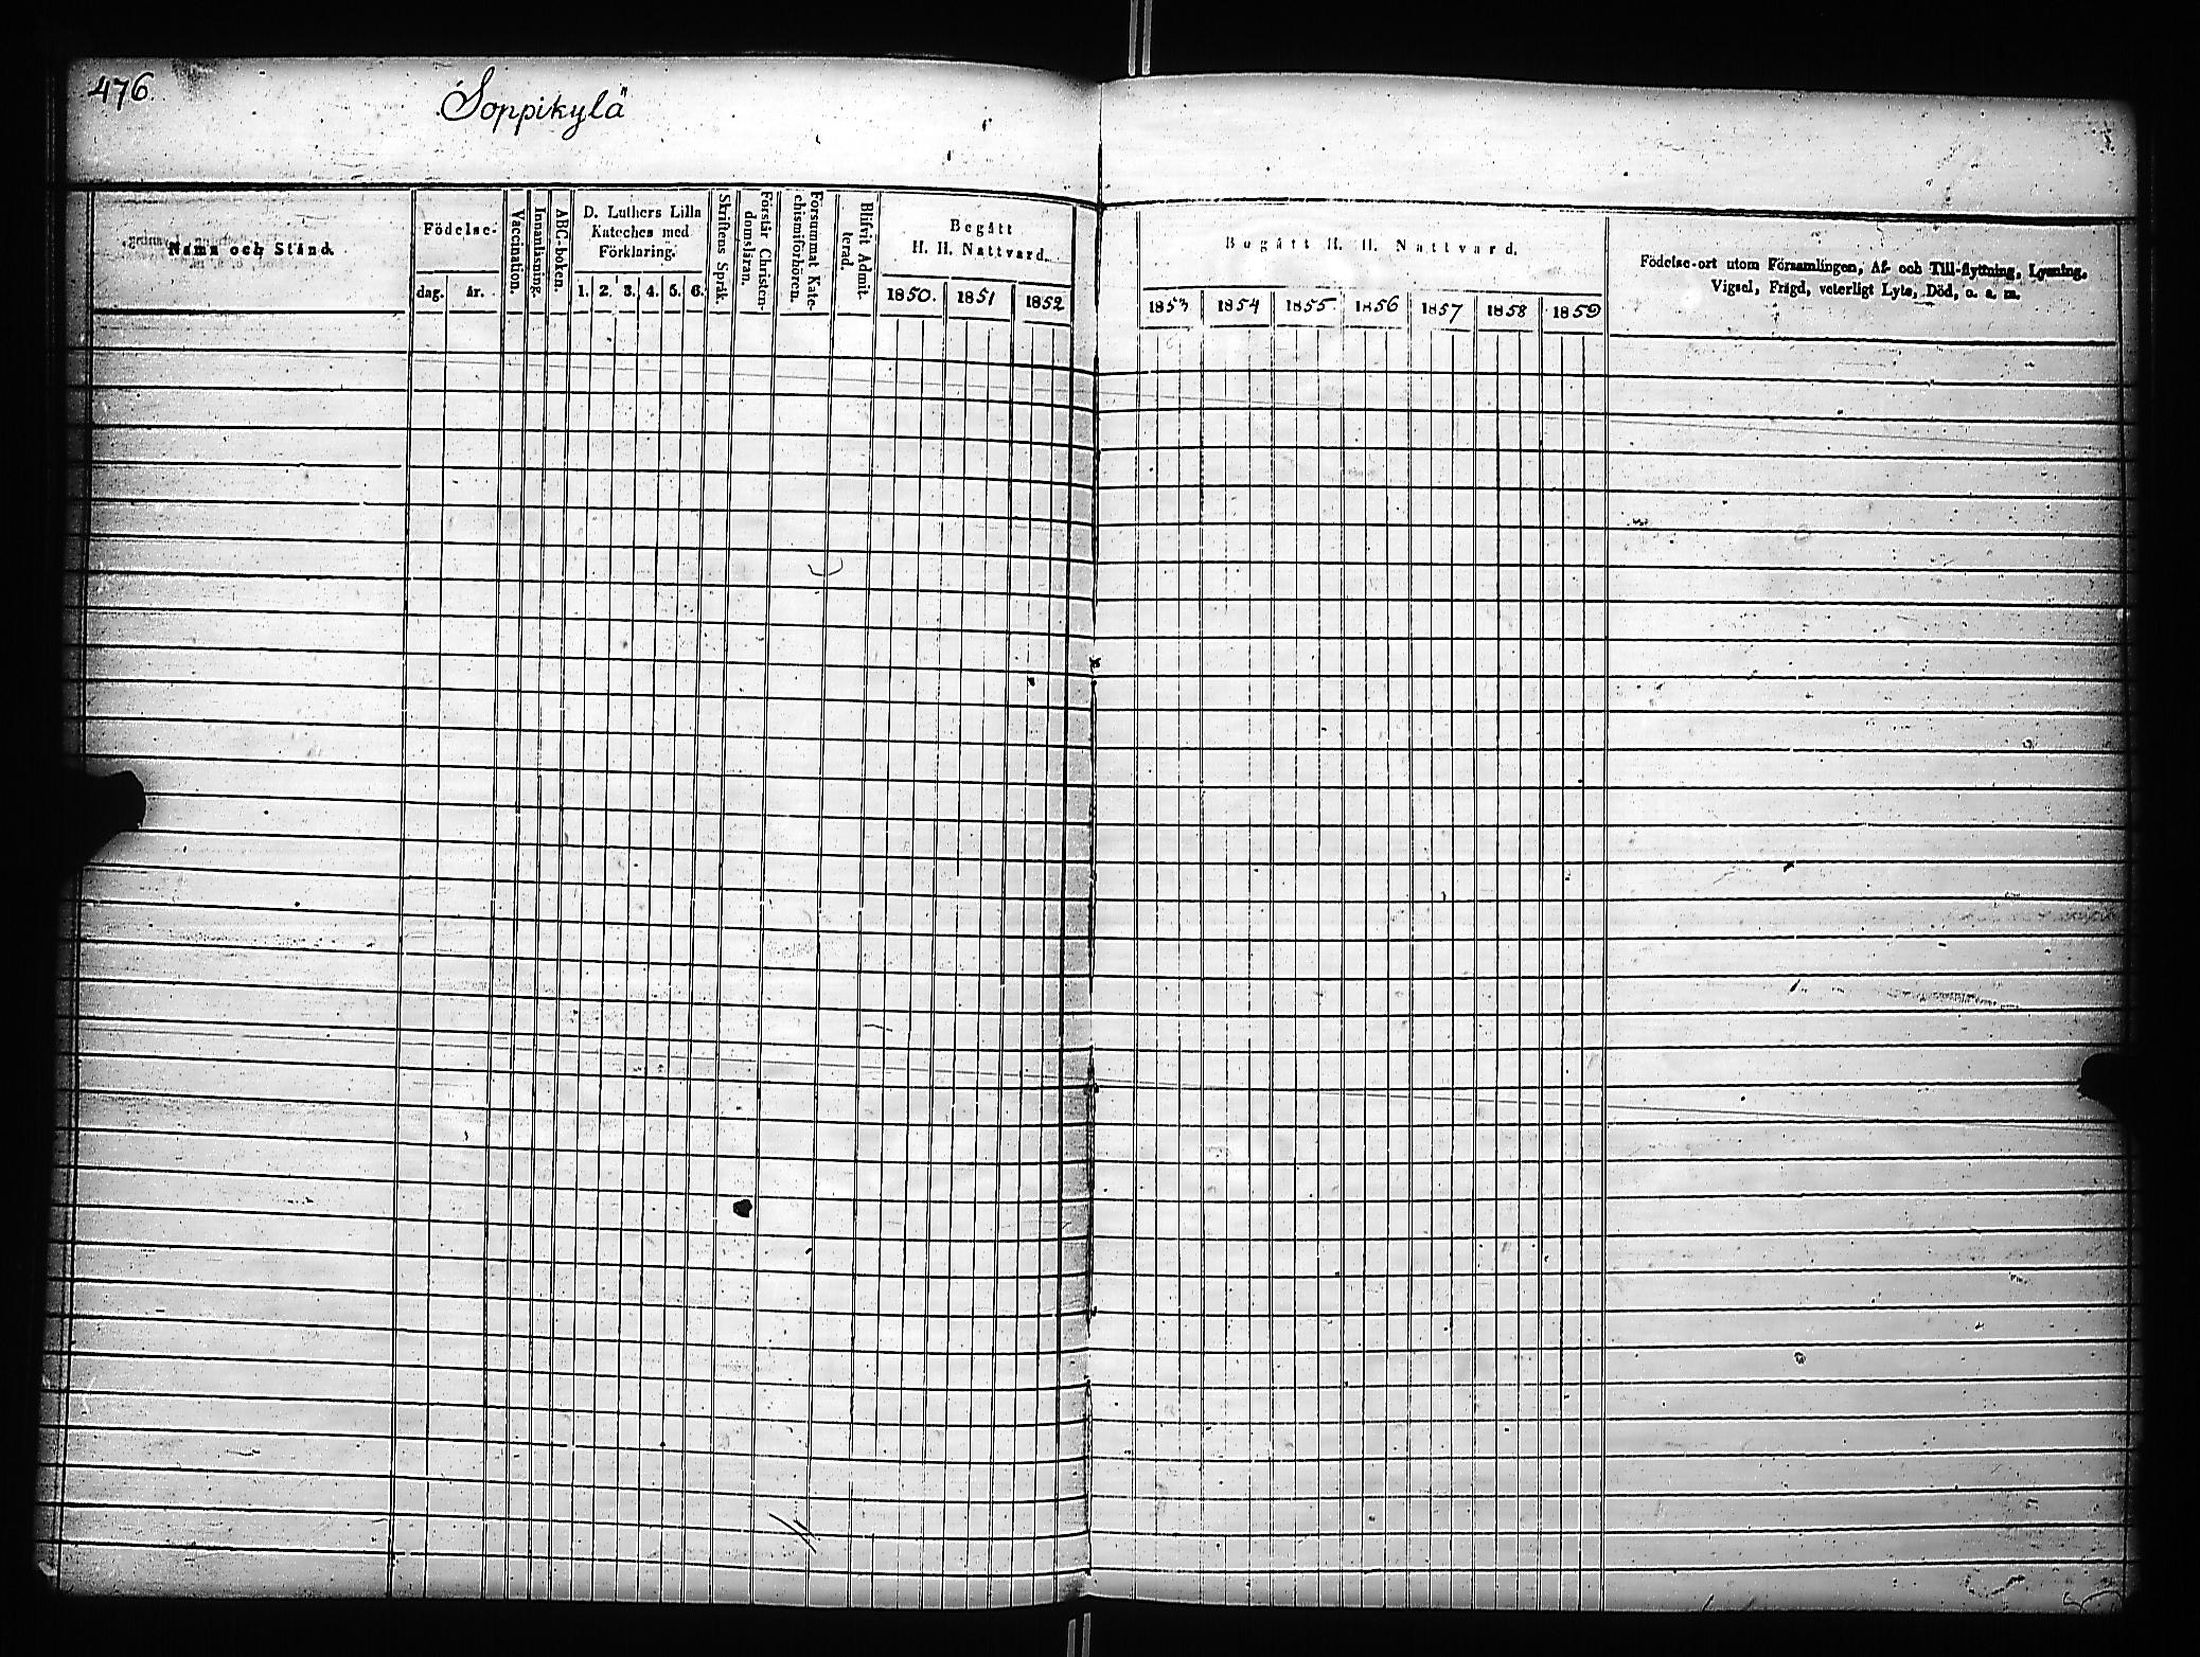 476.
Soppikylä
Namn och Stånd.
Födelse-
dag.
år.
Vaccination.
Innanläsning.
ABC-boken.
D. Luthers Lilla
Kateches med
Förklaring.
1. 2. 3. 4. 5. 6.
Skriftens Språk.
Förstår Christen-
domsläran.
Försummat Kate-
chismiförhören.
Blifvit Admit-
terad.
Begått
H. H. Nattvard.
1850. 1851 1852
Begått H. H. Nattvard.
1853 1854 1855 1856 1857 1858 1859
Födelse-ort utom Församlingen, Af- och Till-flyttning, Lysning,
Vigsel, Frägd, veterligt Lyte, Död, o. s. m.